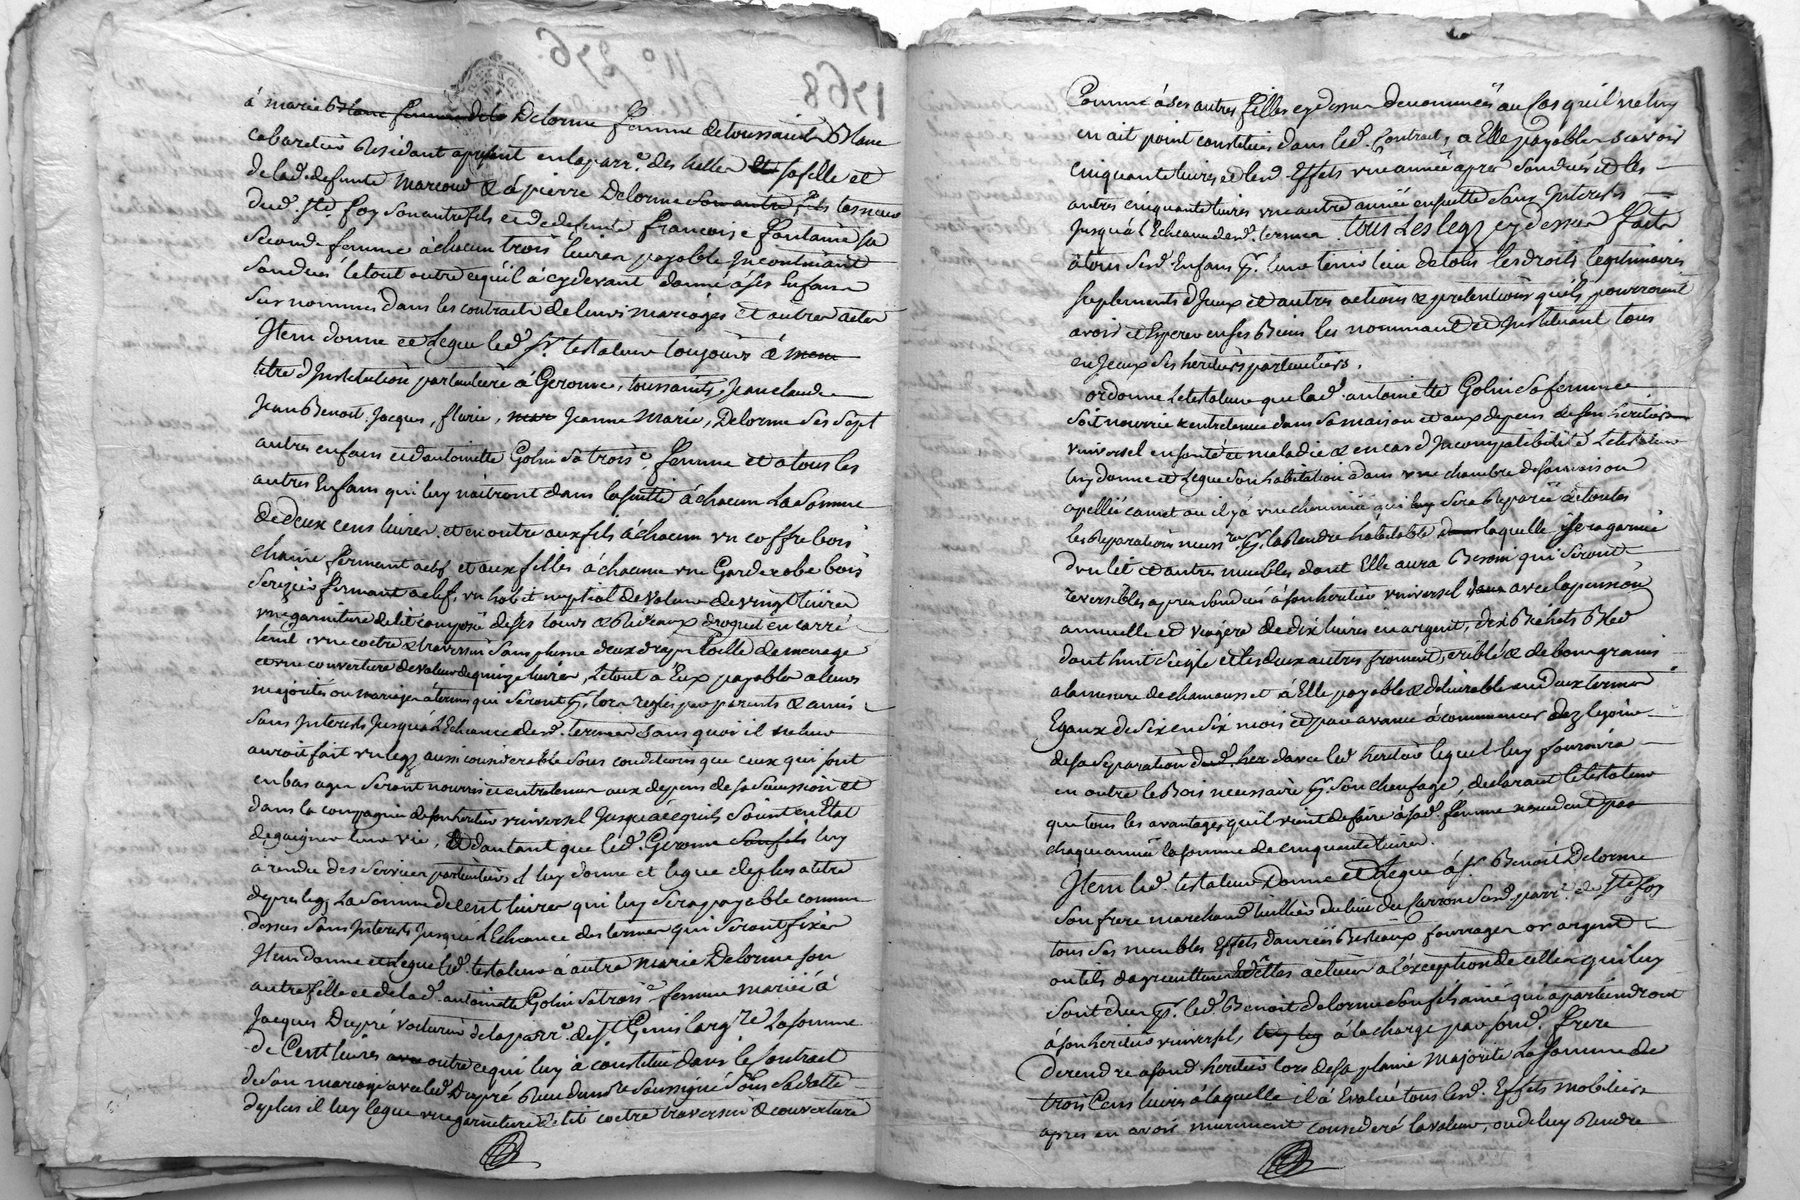 N° 276.
1768
à marie Blanc femme de la Delorme femme de toussaint Blanc
cabaretier Residant apresent en la parr.e des halles et sa fille et
de lad. defunte Marcoud & à pierre Delorme son autre fils
dud. Ste. foy son autre fils et de defunte francoise fontaine sa
seconde femme à chacun trois livres payable incontinant
son deces le tout outre ce qu'il à cy devant donné à ses Enfans
sus nommes dans les contracts de leurs mariages et autres actes
Item donne et Legue led. Sr. testateur toujours à meme
titre d'Institution particuliere à Gerome, toussaints, Jean claude
Jean Benoit, Jacques, flurie, mar Jeanne Marie, Delorme ses sept
autres enfans et d'antoinette Golin sa trois.e femme et a tous les
autres Enfans qui luy naitront dans la suitte à chacun La Somme
de deux cens livres et en outre aux fils à chacun un coffre bois
chaine fermant a clef et aux filles à chacune une Garderobe bois
Serizier fermant a clef, un habit nuptial de valeur de vingt livres
une garniture de lit composé de ses tours & Rideaux droguet en carré
une coetre & traversin sans plume deux draps toille de menage
et une couverture de valeur de quinze livres, Le tout à Eux payable a leurs
majorités ou mariages à termes qui seront pr. lors reglés par parents & amis
sans Interests Jusqu'à L'Echeance desd. termes sans quoi il ne leur
auroit fait un legs aussi considerable sous conditions que ceux qui sont
en bas ages seront nourris et entretenus aux depens de sa succession et
dans la compagnie de son heritier universel Jusqu'à ce qu'ils soint en Etat
de gaigner leur vie, Et d'autant que led. Gerome son fils luy
a rendu des services particuliers il luy donne et legue de plus a titre
de prelegs La somme de Cent livres qui luy sera payable comme
dessus sans Interests Jusqu'à L'Echeance des termes qui seront fixés
Item donne et Legue led. testateur à autre Marie Delorme son
autre fille et de lad. antoinette Golin sa trois.e femme mariée à
Jacques Dupré voiturier de la parr.e de St. Genis l'arg.re La somme
de Cent livres avec outre ce qui luy à constitué dans le Contract
de son mariage avec led. Dupré Reçu du no.re soussigné sous sa datte
de plus il luy legue une garniture de lit coetre traversin & couverture
Comme à ses autres filles cy dessus denommées au cas qu'il ne luy
en ait point constitué dans led. Contract, a Elle payable scavoir
cinquante livres et lesd. Effets une année apres son deces et les
autres cinquante livres une autre année en suitte sans Interests
Jusqu'à l'Echeance desd. termes. Tous Les legs cy dessus faits
à tous sesd. Enfans pr. leur tenir lieu de tous les droits legitimaires
suplements d'Jceux et autres actions & pretentions qu'ils pourroient
avoir et Esperer en ses Biens les nommant et Instituant tous
en Jceux ses heritiers particuliers.
ordonne Le testateur que lad. antoinette Golin sa femme
soit nourrie & entretenue dans sa maison et aux depens de son heritier
universel en santé et maladie & en cas d'Incompatibilité Le testateur
luy donne et Legue son habitation dans une chambre de sa maison
apellée canet ou il y a une cheminée qui luy sera Reparée de toutes
les Reparations necess.res pr. la Rendre habitable dans laquelle sera garnie
d'un lit et autres meubles dont Elle aura Besoin qui seront
reversibles apres son deces à son heritier universel dans avec la pension
annuelle et viagere de dix livres en argent, dix Bichets Bled
dont huit seigle et les deux autres froment, criblé & de bon grain
a la mesure de chamousset à Elle payable & delivrable en deux termes
Egaux de six en six mois et par avance à commencer dez le jour
de sa separation dud. her d'avec led. heritier lequel luy fournira
en outre le Bois necessaire pr. son chaufage, declarant le testateur
que tous les avantages qu'il vient de faire à sad. femme n'excedent pas
chaque année la somme de cinquante livres.
Item led. testateur Donne et Legue à Sr. Benoit Delorme
son frere marchand tuillier du lieu du sarron susd. parr.e de Ste foy
tous ses meubles Effets danrées Bestiaux fourrages or argent
outils d'agriculture dettes actives a l'exception de celles qui luy
sont dues pr. led. Benoit Delorme son fils ainé qui apartiendront
à son heritier universel, luy luy à la charge par sond. frere
de rendre a sond. heritier lors de sa plaine Majorité La somme de
trois Cens livres à laquelle il à Evalué tous lesd. Effets mobiliers
apres en avoir murement consideré la valeur, ou de luy Rendre